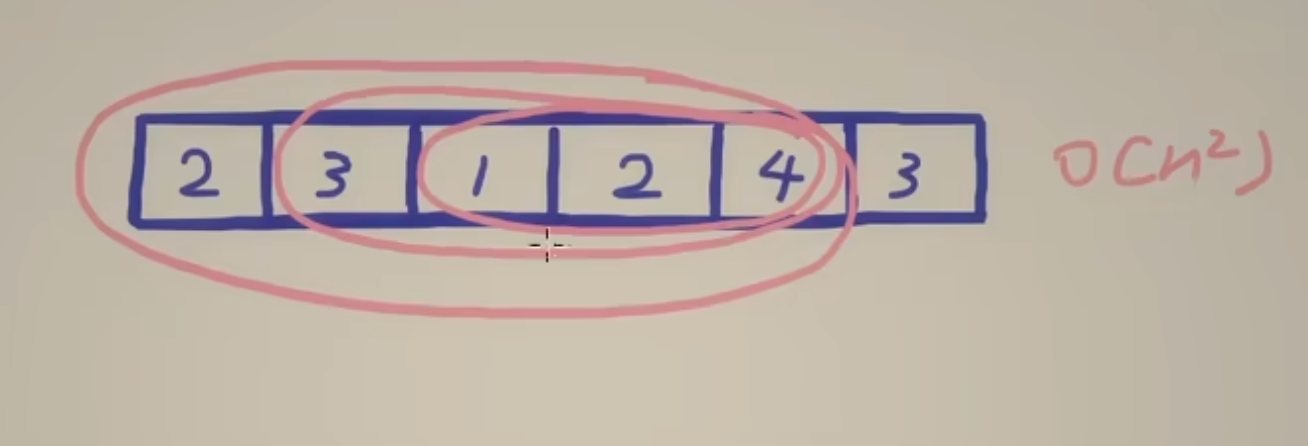 2 3 1 2 4 3 O(n²)